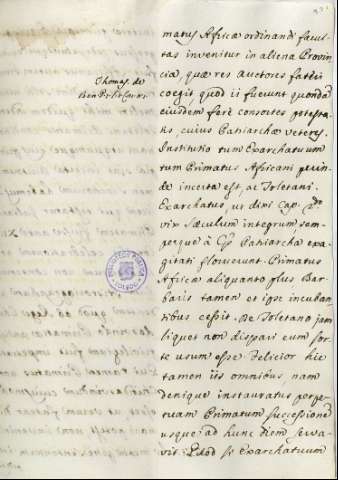 Thomas. de
Benef.
matus Africæ ordinandi facul
tas invenitur in aliena Provin
cia, quæ res auctores fateri
coegit, quod ii fuerunt quondã
eiusdem ferè consortes potesta
tis, cuius Patriarchæ veteres.
Institutio tum Exarchatuum
tum Primatus Africani perin
de incerta est, ac Toletani.
Exarchatus ut dixi Cap.
vix sæculum integrum, sem
perque à Patriarcha exa
gitati floruerunt. Primatus
Africæ aliquanto plus Bar
baris tamen et ipse incuban
tibus cessit. De Toletano jam
liquet non dispari eum sor
te usum esse. Felicior hic
tamen iis omnibus, nam
denique instauratus perpe
tuam Primatum successionẽ
usque ad hunc diem serva
vit. Quod si Exarchatuum
BIBLIOTECA PUBLICA
TOLEDO